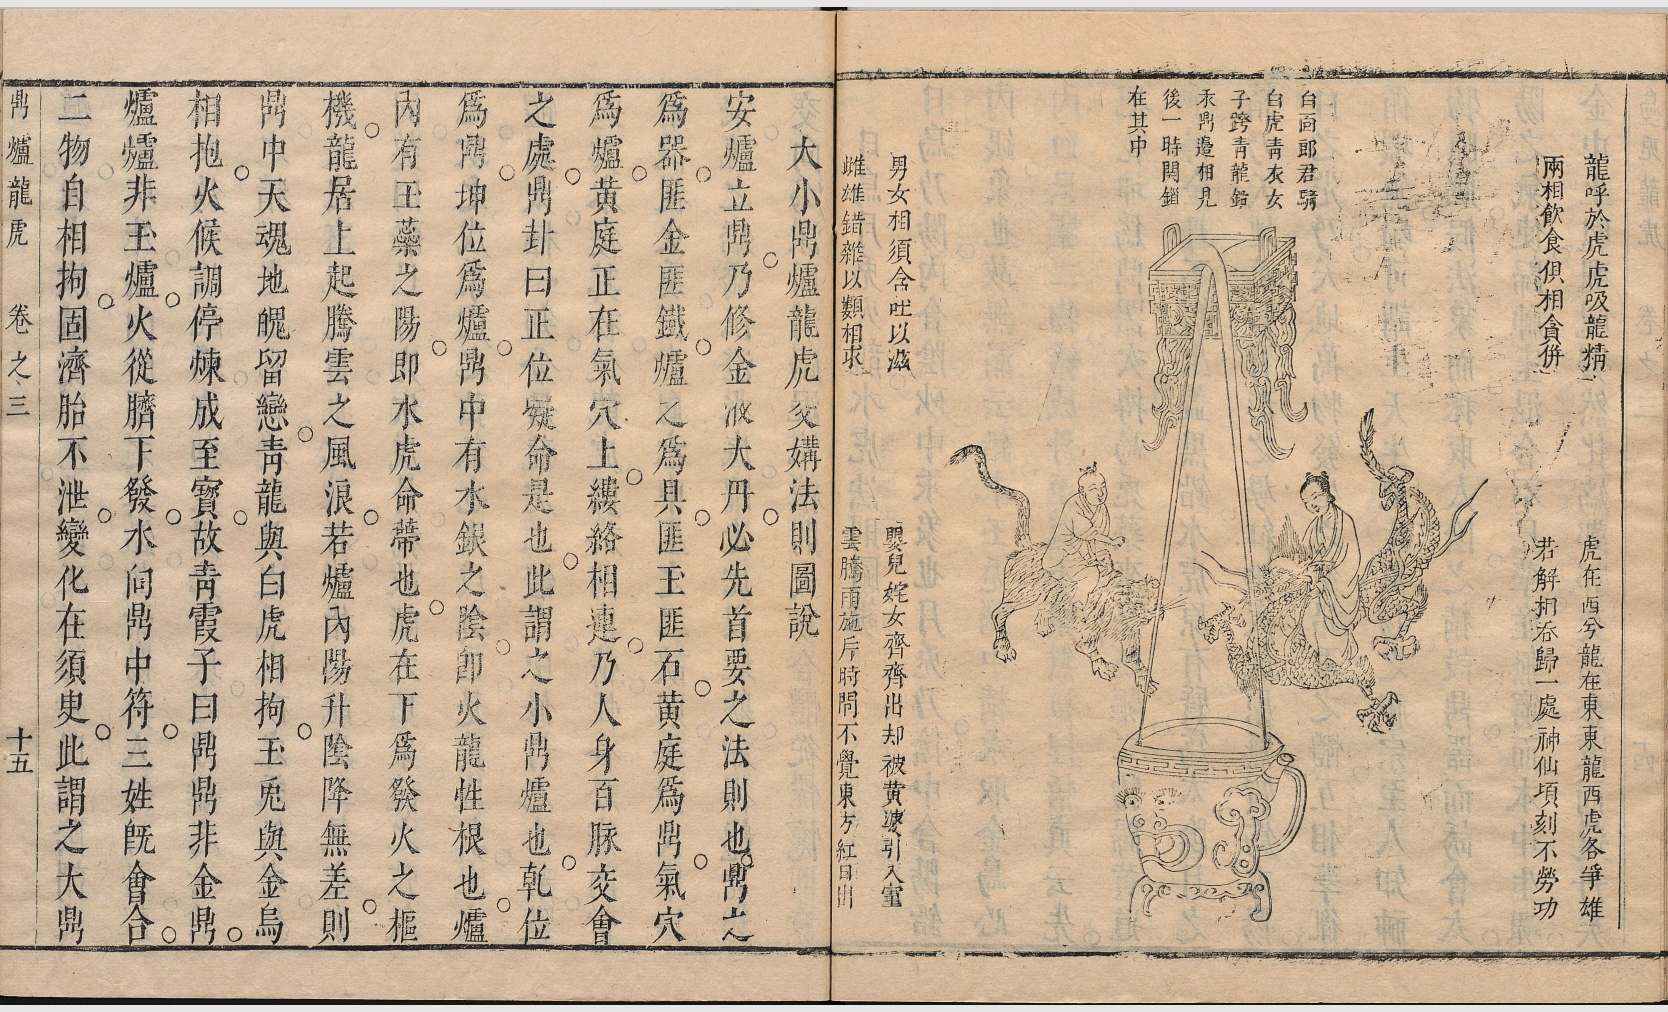 龍呼於虎虎吸龍精
兩相飲食俱相貪併
虎在西兮龍在東東龍西虎各爭雄
若解相吞歸一處神仙頃刻不勞功
白面郎君騎
白虎青衣女
子跨青龍鉛
汞鼎邊相見
後一時関鎖
在其中
男女相須含吐以滋
雌雄錯雜以類相求
嬰兒姹女齊齊出却被黄婆引入室
雲騰雨施片時間不覺東方紅日出
大小鼎爐龍虎交媾法則圖說
安爐立鼎乃修金液大丹必先首要之法則也鼎之
爲器匪金匪鐵爐之爲具匪玉匪石黄庭爲鼎氣穴
爲爐黄庭正在氣穴上縷絡相連乃人身百脉交會
之處鼎卦曰正位凝命是也此謂之小鼎爐也乾位
爲鼎坤位爲爐鼎中有水銀之隂即火龍性根也爐
內有玉蘂之陽即水虎命蒂也虎在下爲發火之樞
機龍居上起騰雲之風浪若爐內陽升隂降無差則
鼎中天魂地魄留戀青龍與白虎相拘玉兎與金烏
相抱火候調停煉成至寳故青霞子曰鼎鼎非金鼎
爐爐非玉爐火從臍下發水向鼎中符三姓旣會合
二物自相拘固濟胎不泄變化在須臾此謂之大鼎
鼎爐龍虎 卷之三 十五